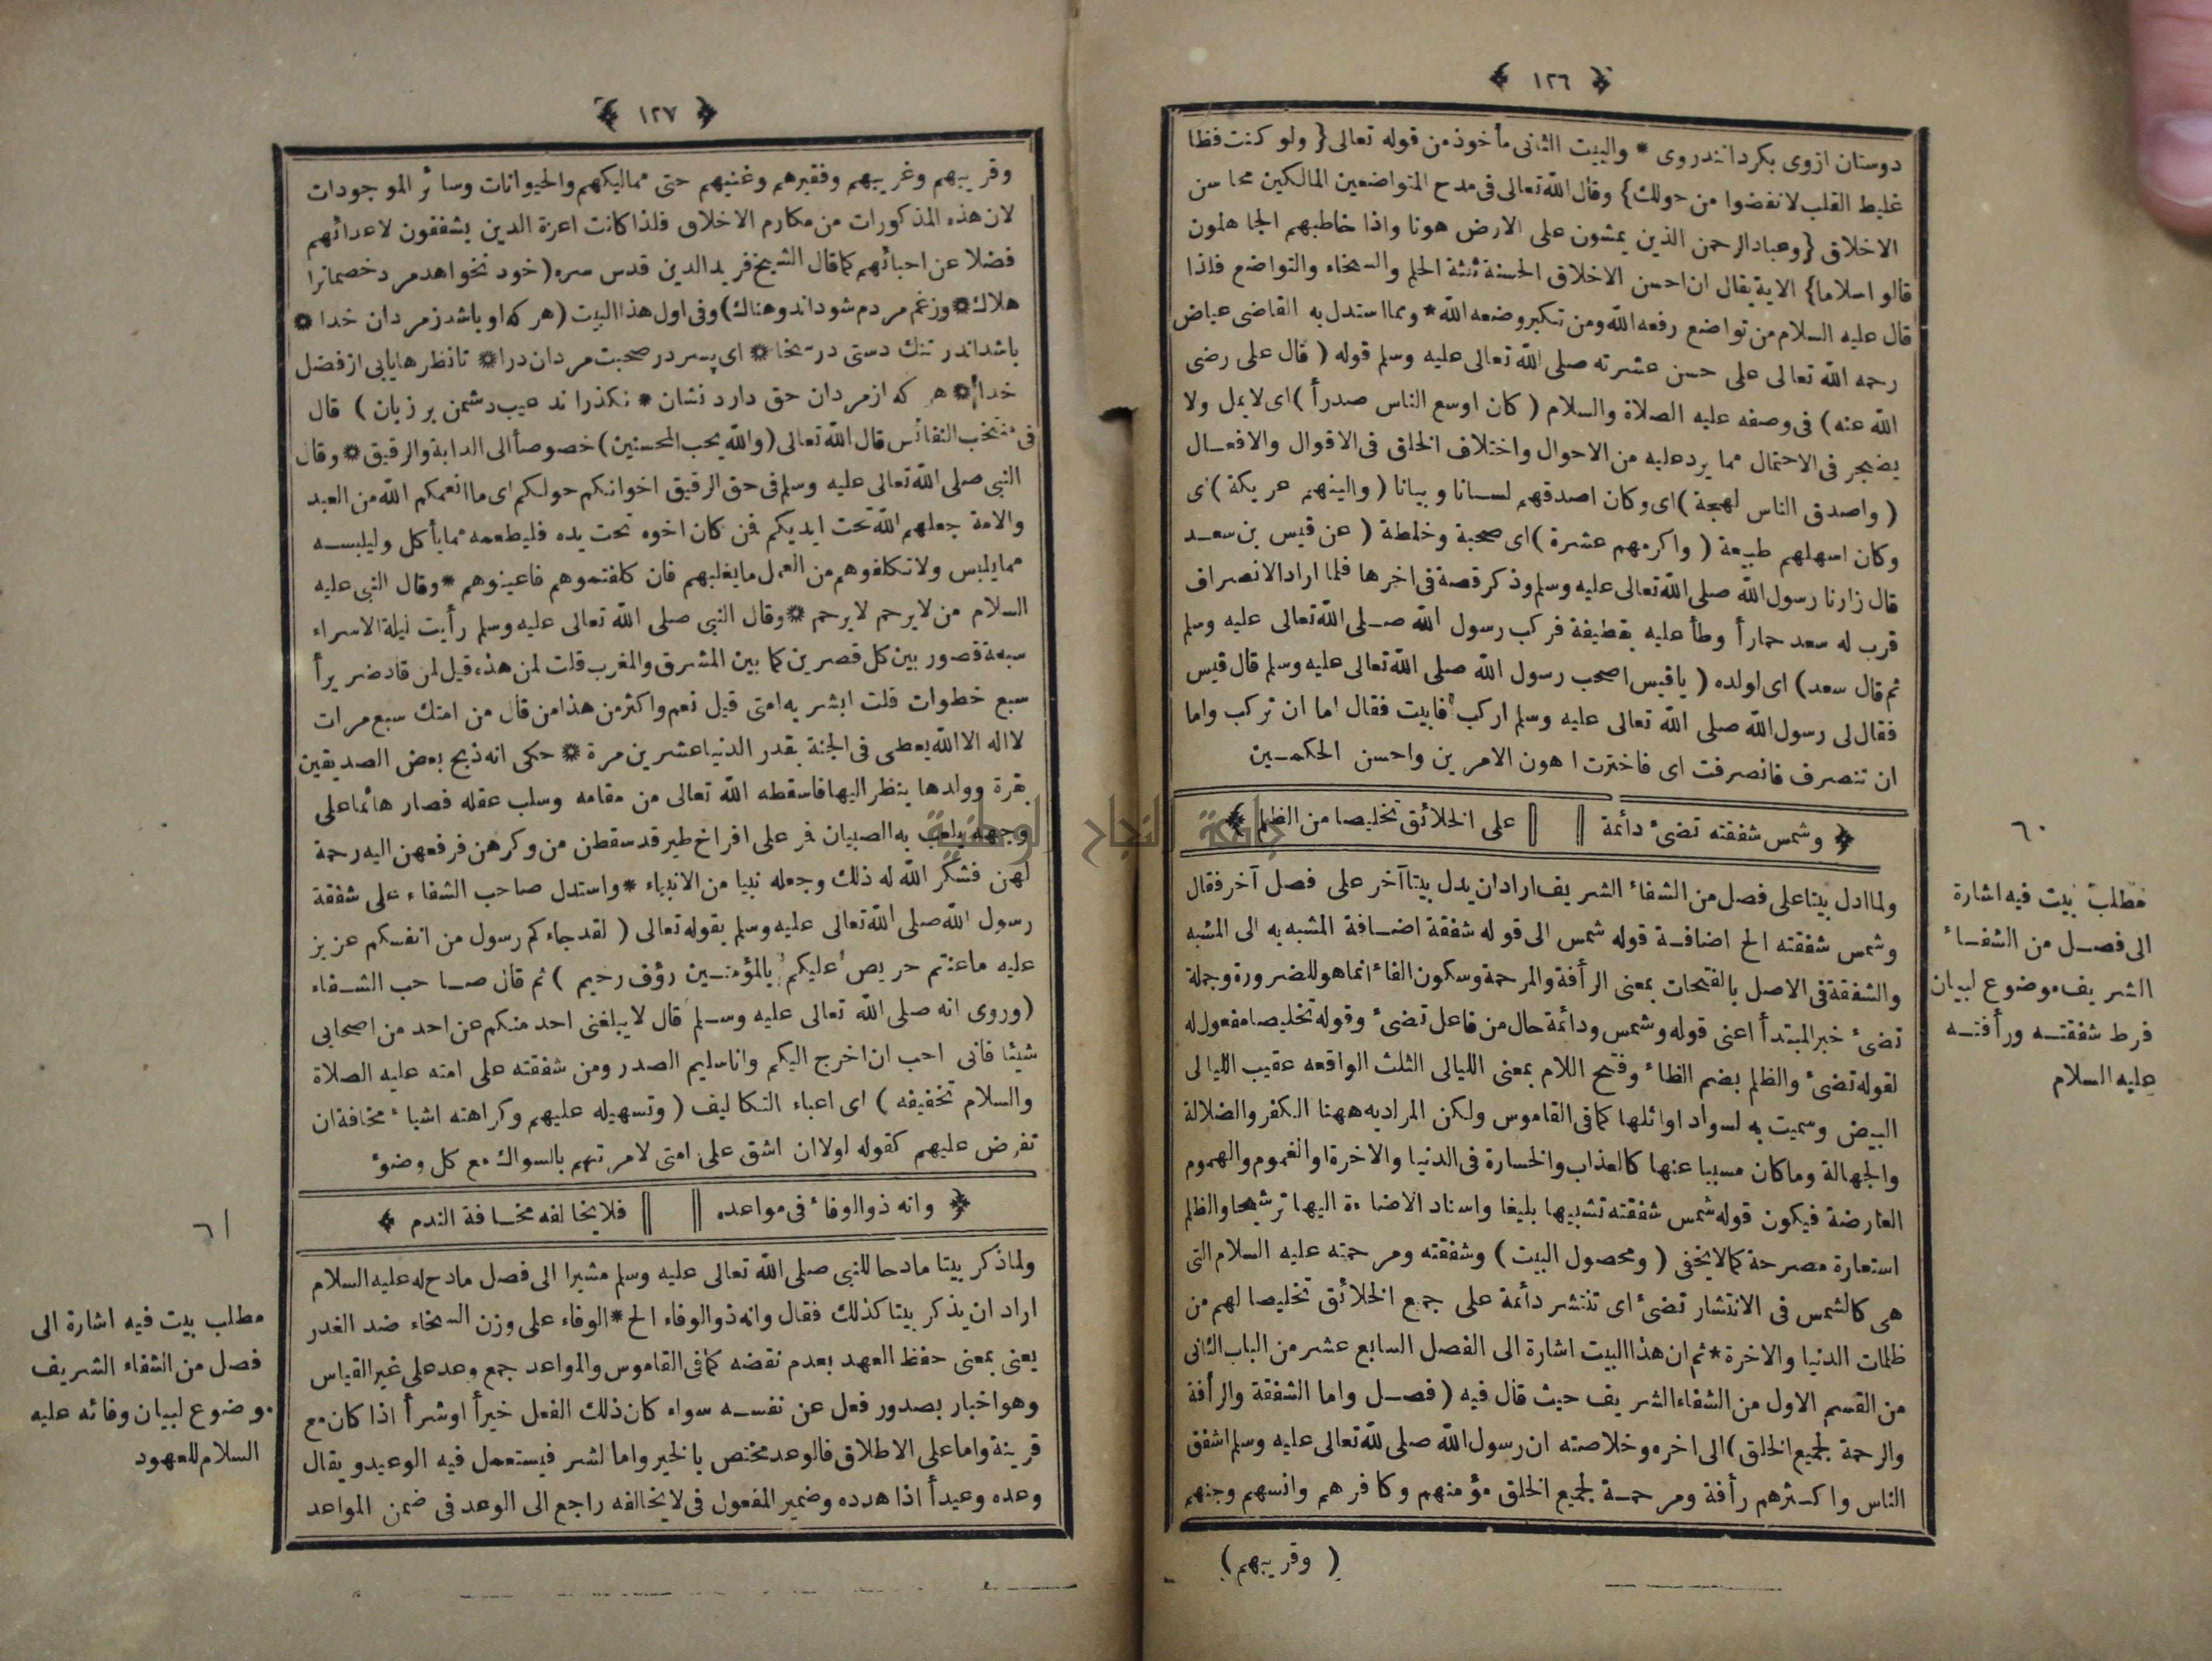 ﴿ ١٢٦ ﴾
دوستان ازوى بكردانندروى * والبيت الثانى مأخوذ من قوله تعالى { ولو كنت فظا
غليظ القلب لانفضوا من حولك } وقال الله تعالى فى مدح المتواضعين المالكين محاسن
الاخلاق { وعباد الرحمن الذين يمشون على الارض هونا واذا خاطبهم الجاهلون
قالو اسلاما } الاية يقال ان احسن الاخلاق الحسنة ثلثة الحلم والسخاء والتواضع فلذا
قال عليه السلام من تواضع رفعه الله ومن تكبر وضعه الله * ومما استدل به القاضى عياض
رحمه الله تعالى على حسن عشرته صلى الله تعالى عليه وسلم قوله ( قال على رضى
الله عنه ) فى وصفه عليه الصلاة والسلام ( كان اوسع الناس صدرأ ) اى لا يمل ولا
يضجر فى الاحتمال مما يرد عليه من الاحوال واختلاف الخلق فى الاقوال والافعـال
( واصدق الناس لهجة ) اى وكان اصدقهم لسـانا وبيانا ( والينهم عريكة ) اى
وكان اسهلهم طبيعة ( واكرمهم عشرة ) اى صحبة وخلطة ( عن قيس بن سعـد
قال زارنا رسول الله صلى الله تعالى عليه وسلم وذكر قصة فى اخرها فلما اراد الانصراف
قرب له سعد حمارأ وطأ عليه بقطيفة فركب رسول الله صـلى الله تعالى عليه وسلم
ثم قال سعد ) اى لولده ( ياقيس اصحب رسول الله صلى الله تعالى عليه وسلم قال قيس
فقال لى رسول الله صلى الله تعالى عليه وسلم اركب فابيت فقال اما ان تركب واما
ان تنصرف فانصرفت اى فاخترت اهون الامرين واحسن الحكمـين
﴿ وشمس شفقته تضىء دائمة || || على الخلائق تخليصا من الظلم ﴾
ولما دل بيتا على فصل من الشفاء الشريف اراد ان يدل بيتا آخر على فصل آخر فقال
وشمس شفقته الح اضافـة قوله شمس الى قوله شفقة اضـافة المشبه به الى المشبه
والشفقة فى الاصل بالفتحات بمعنى الرأفة والمرحمة وسكون الفاء انما هو للضرورة وجملة
تضىء خبر المبتدأ اعنى قوله وشمس ودائمة حال من فاعل تضىء وقوله تخليصا مفعول له
لقوله تضىء والظلم بضم الظاء وفتح اللام بمعنى الليالى الثلث الواقعه عقيب الليالى
البيض وسميت به لسواد اوائلها كما فى القاموس ولكن المراد به ههنا الكفر والضلالة
والجهالة وما كان مسببا عنها كالعذاب والخسارة فى الدنيا والاخرة او الغموم والهموم
العارضة فيكون قوله شمس شفقته تشبيها بليغا واسناد الاضاءة اليها ترشيحا والظلم
استعارة مصرحة كما لا يخفى ( ومحصول البيت ) وشفقته ومرحمته عليه السلام التى
هى كالشمس فى الانتشار تضىء اى تنتشر دائمة على جميع الخلائق تخليصا لهم من
ظلمات الدنيا والاخرة * ثم ان هذا البيت اشارة الى الفصل السابع عشر من الباب الثانى
من القسم الاول من الشفاء الشريف حيث قال فيه ( فصـل واما الشفقة والرأفة
والرحمة لجميع الخلق ) الى اخره وخلاصته ان رسول الله صلى لله تعالى عليه وسلم اشفق
الناس واكـثرهم رأفة ومرحمـة لجميع الخلق مؤمنهم وكافرهم وانسهم وجنهم
( وقريبهم )
٦٠
مطلب بيت فيه اشارة
الى فصـل من الشفـاء
الشريف موضوع لبيان
فرط شفقتـه ورأفتـه
عليه السلام
﴿ ١٢٧ ﴾
وقريبهم وغريبهم وفقيرهم وغنيهم حتى مماليكهم والحيوانات وسائر الموجودات
لان هذه المذكورات من مكارم الاخلاق فلذا كانت اعزة الدين يشفقون لاعدائهم
فضلا عن احبائهم كما قال الشيخ فريد الدين قدس سره ( خود نخواهد مرد خصمانرا
هلاك * وزغم مردم شود اندوهناك ) وفى اول هذا البيت ( هر كه او باشد زمردان خدا *
باشد اندر تنك دستى در سخا * اى پسر در صحبت مردان درا * تا نظرها يابى از فضل
خدا * هر كه از مردان حق دارد نشان * نكذراند عيب دشمن بر زبان ) قال
فى منتخب النفائس قال الله تعالى ( والله يحب المحسنين ) خصوصأ الى الدابة والرقيق * وقال
النبى صلى الله تعالى عليه وسلم فى حق الرقيق اخوانكم حولكم اى ما انعمكم الله من العبد
والامة جعلهم الله تحت ايديكم فمن كان اخوه تحت يده فليطعمه مما يأكل وليلبسـه
مما يلبس ولا تكلفوهم من العمل ما يغلبهم فان كلفتموهم فاعينوهم * وقال النبى عليه
السلام من لا يرحم لا يرحم * وقال النبى صلى الله تعالى عليه وسلم رأيت ليلة الاسراء
سبعة قصور بين كل قصرين كما بين المشرق والمغرب قلت لمن هذه قيل لمن قاد ضريرأ
سبع خطوات قلت ابشر به امتى قيل نعم واكثر من هذا من قال من امتك سبع مرات
لا اله الا الله يعطى فى الجنة بقدر الدنيا عشرين مرة * حكى انه ذبح بعض الصديقين
بقرة وولدها ينظر اليها فاسقطه الله تعالى من مقامه وسلب عقله فصار هائما على
وجهه يلعب به الصبيان فمر على افراخ طير قد سقطن من وكرهن فرفعهن اليه رحمة
لهن فشكر الله له ذلك وجعله نبيا من الانبياء * واستدل صاحب الشفاء على شفقة
رسول الله صلى الله تعالى عليه وسلم بقوله تعالى ( لقد جاءكم رسول من انفسكم عزيز
عليه ما عنتم حريص عليكم بالمؤمنـين رؤف رحيم ) ثم قال صـاحب الشـفاء
( وروى انه صلى الله تعالى عليه وسـلم قال لا يبلغنى احد منكم عن احد من اصحابى
شيئا فانى احب ان اخرج اليكم وانا سليم الصدر ومن شفقته على امته عليه الصلاة
والسلام تخفيفه ) اى اعباء التكاليف ( وتسهيله عليهم وكراهته اشياء مخافة ان
تفرض عليهم كقوله لولا ان اشق على امتى لامرتهم بالسواك مع كل وضوء
﴿ وانه ذو الوفاء فى مواعده || || فلا يخالفه مخـافة الندم ﴾
ولما ذكر بيتا مادحا للنبى صلى الله تعالى عليه وسلم مشيرا الى فصل مادح له عليه السلام
اراد ان يذكر بيتا كذلك فقال وانه ذو الوفاء الح * الوفاء على وزن السخاء ضد الغدر
يعنى بمعنى حفظ العهد بعدم نقضه كما فى القاموس والمواعد جمع وعد على غير القياس
وهو اخبار بصدور فعل عن نفسـه سواء كان ذلك الفعل خيرأ او شرأ اذا كان مع
قرينة واما على الاطلاق فالوعد مختص بالخير واما لشر فيستعمل فيه الوعيد ويقال
وعده وعيدأ اذا هدده وضمير المفعول فى لا يخالفه راجع الى الوعد فى ضمن المواعد
٦١
مطلب بيت فيه اشارة الى
فصل من الشفاء الشريف
موضوع لبيان وفائه عليه
السلام للعهود
جامعة النجاح الوطنية